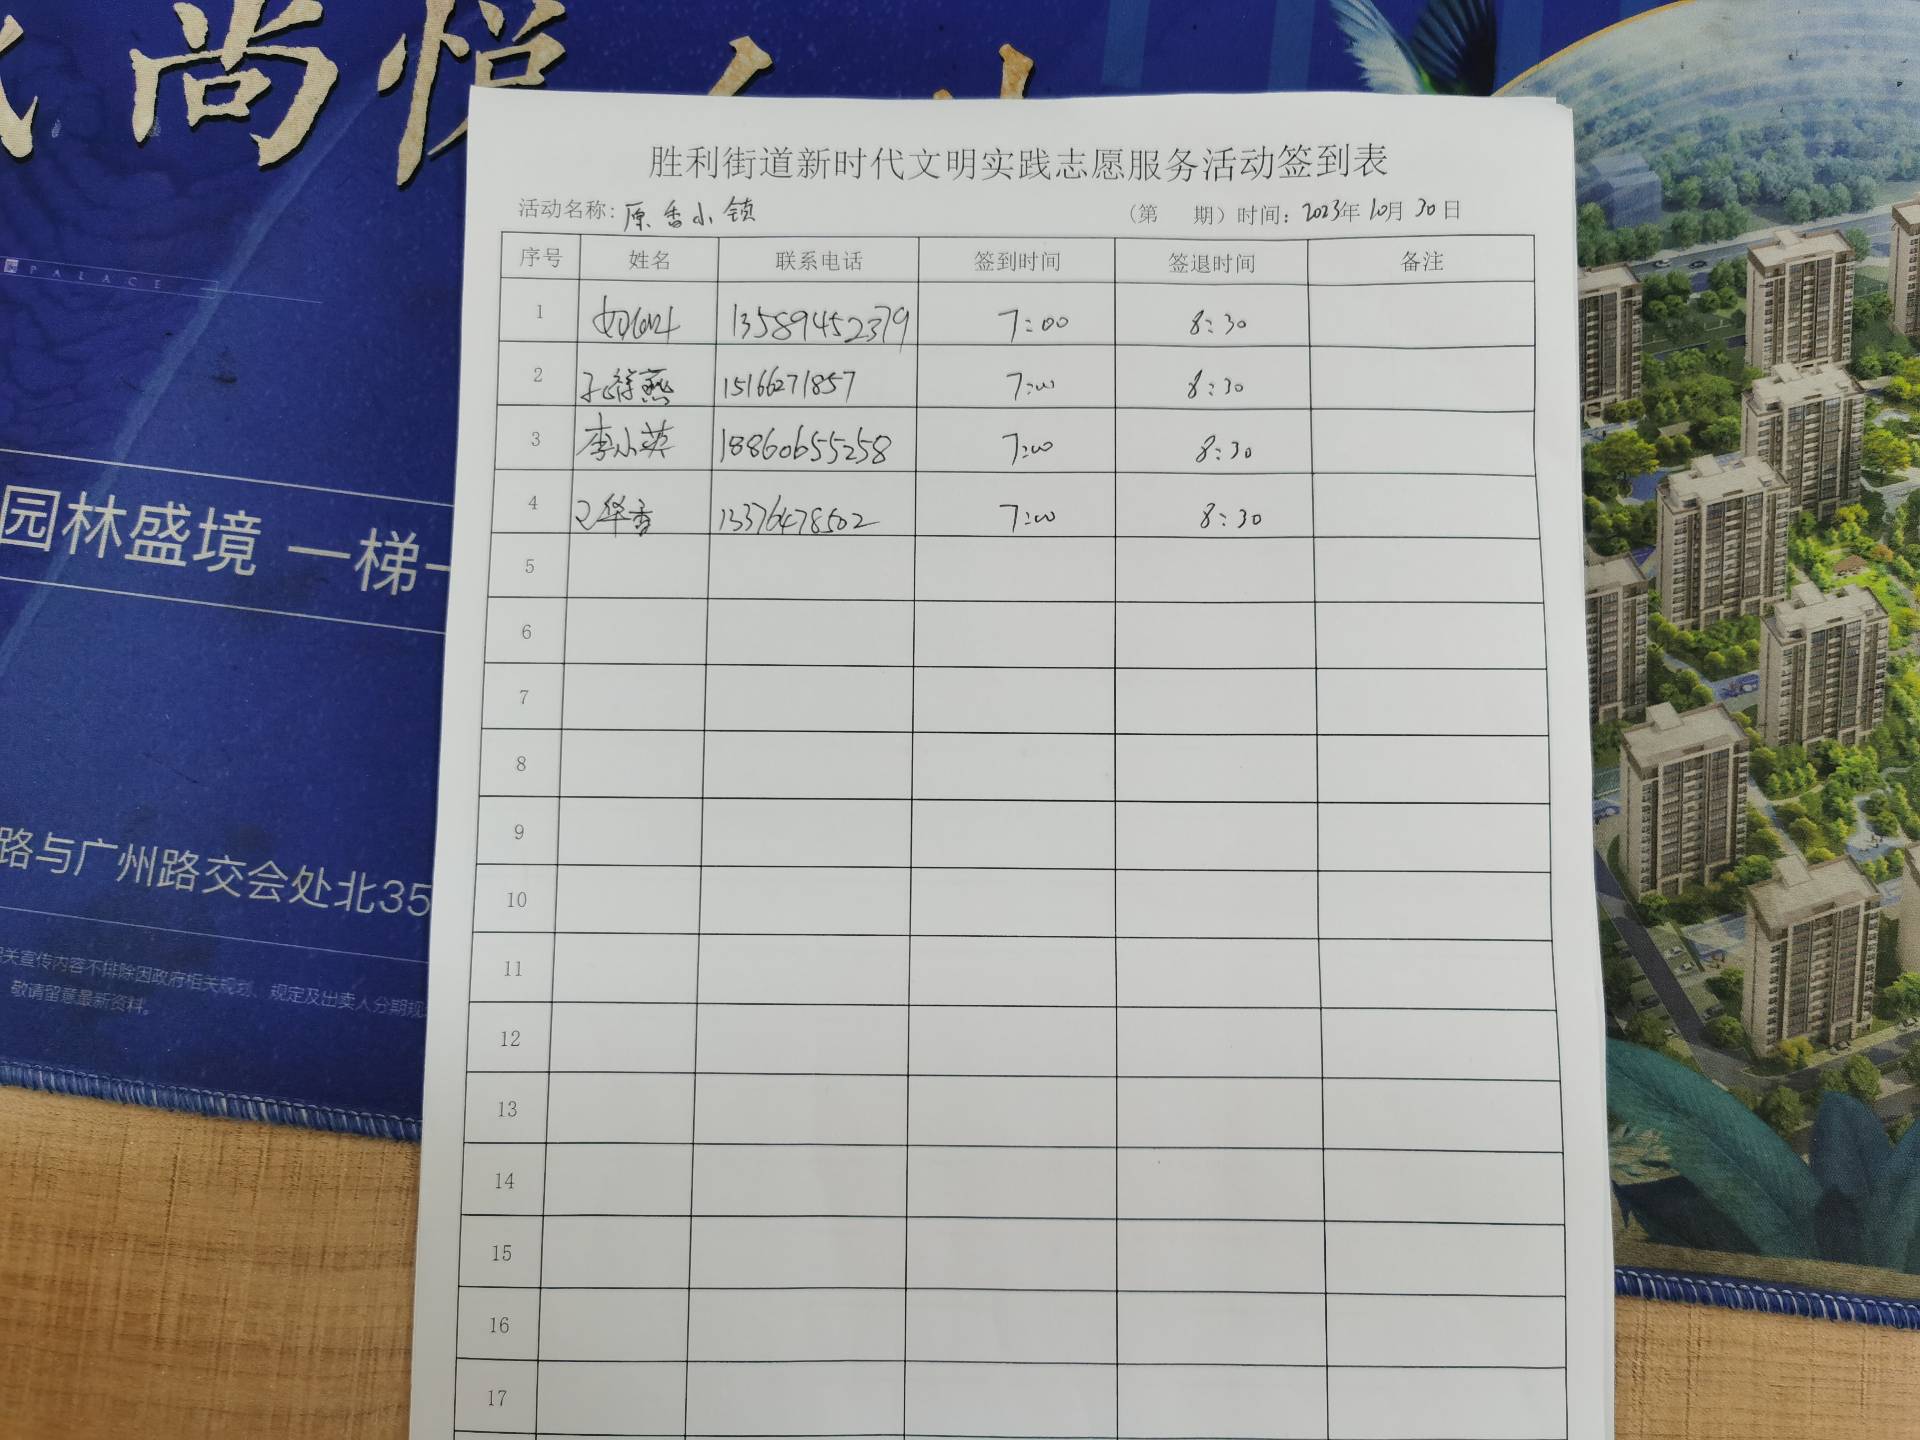 尚悦
PALACE
园林盛境 一梯
路与广州路交会处北35
关宣传内容不排除因政府相关规划、规定及出卖人分期规
敬请留意最新资料。
胜利街道新时代文明实践志愿服务活动签到表
活动名称: 原香小镇 (第 期) 时间: 2023年10月30日
序号 姓名 联系电话 签到时间 签退时间 备注
1 13589452379 7:00 8:30
2 孙绿燕 15166271857 7:00 8:30
3 李小英 18860655258 7:00 8:30
4 华香 13376478502 7:00 8:30
5
6
7
8
9
10
11
12
13
14
15
16
17